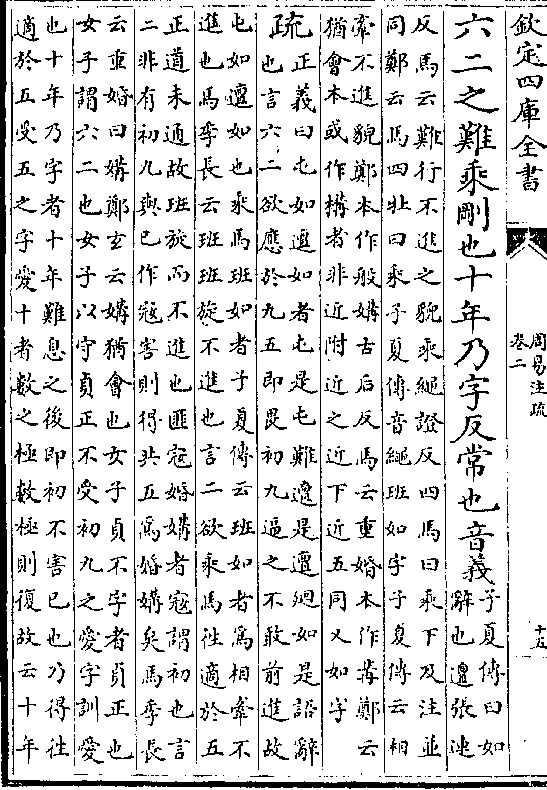 欽定四庫全書
周易注疏
卷二
十五
六二之難乘剛也十年乃字反常也音義子夏傳曰如
辭也邅張連
反馬云難行不進之貌乘繩證反四馬曰乘下及注並
同鄭云馬四牡曰乘子夏傳音繩班如字子夏傳云相
牽不進貌鄭本作般媾古后反馬云重婚本作冓鄭云
猶會本或作構者非近附近之近下近五同又如字
疏正義曰屯如邅如者屯是屯難邅是邅迴如是語辭
也言六二欲應於九五即畏初九逼之不敢前進故
屯如邅如也乘馬班如者子夏傳云班如者為相牽不
進也馬季長云班班旋不進也言二欲乘馬往適於五
正道未通故班旋而不進也匪寇婚媾者寇謂初也言
二非有初九與已作寇害則得共五為婚媾矣馬季長
云重婚曰媾鄭玄云媾猶會也女子貞不字者貞正也
女子謂六二也女子以守貞正不受初九之愛字訓愛
也十年乃字者十年難息之後即初不害已也乃得往
適於五受五之字愛十者數之極數極則復故云十年